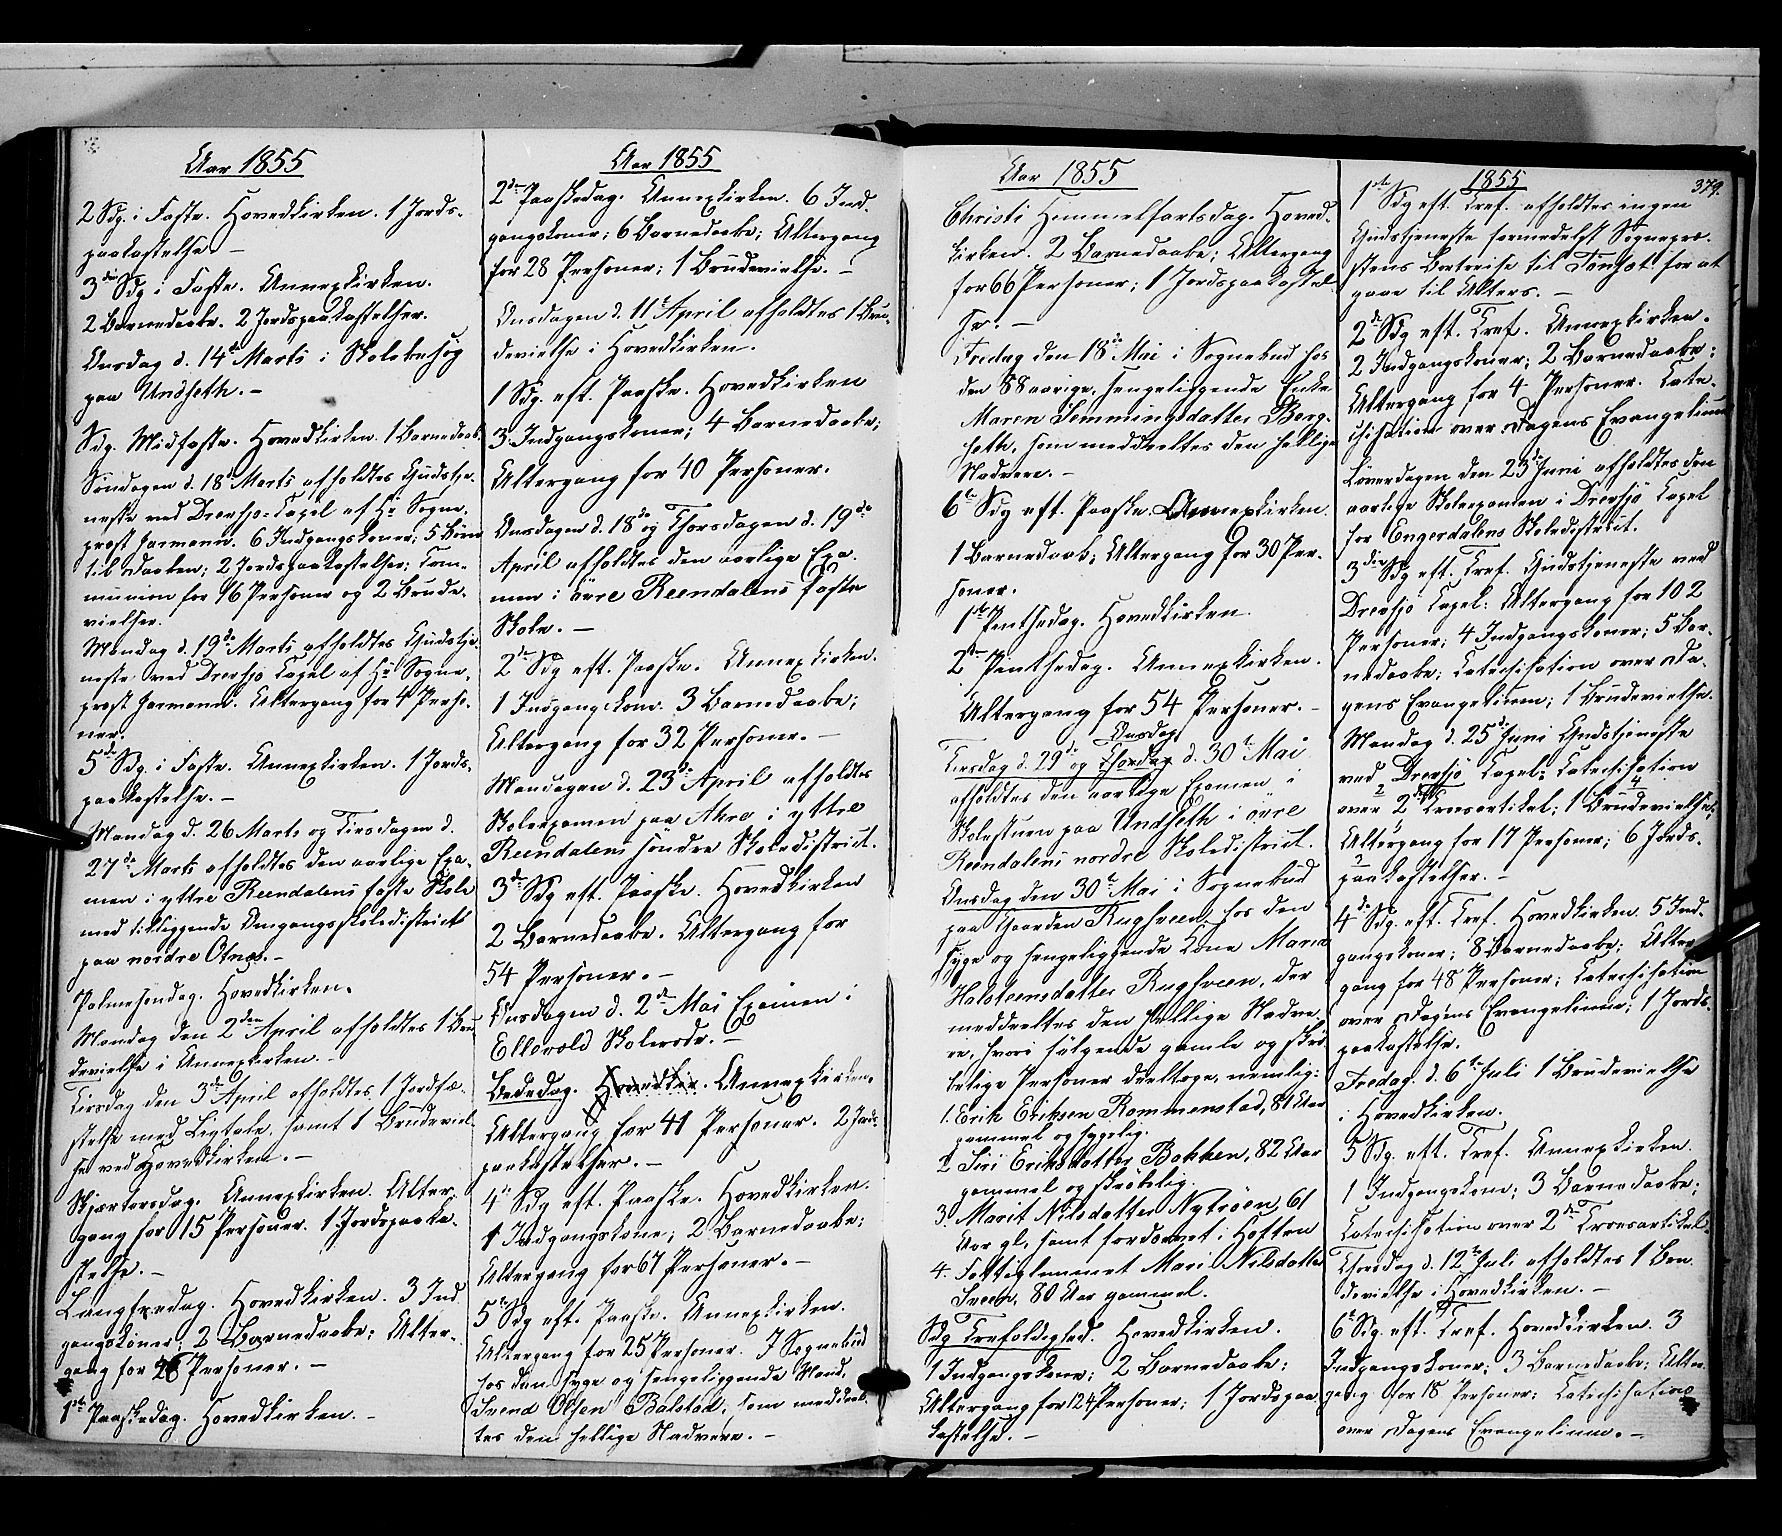 Aar 1855
2 Sdg. i Faste. Hovedkirken. 1 Jords-
paakastelse. –
3die Sdg i Faste. Annexkirken.
2 Barnedaabe. 2 Jordspaakastelser.
Onsdag d. 14de Marts i Skolebesøg
paa Undseth. –
Sdg. Midfaste. Hovedkirken. 1 Barnedaab.
Søndagen d. 18de Marts afholdtes Gudstje-
neste ved Drevsjø-Capel af Hr Sogne-
prest Jarmann. 6 Indgangskoner; 5 Børn
til Daaben; 2 Jordspaakastelser; Com-
munion for 16 Personer og 2 Brude-
vielser.
Mandag d. 19de Marts afholdtes Gudstje-
neste ved Drevsjø Capel af Hr Sogne-
prest Jarmann. Altergang for 4 Perso-
ner.
5te Sdg. i Faste. Annexkirken. 1 Jords-
paakastelse. –
Mandag d. 26 Marts og Tirsdagen d.
27de Marts afholdtes den aarlige Exa-
men i yttre Reendalens faste Skole
med tilliggende Omgangsskoledistrict
paa nordre Otnes. –
Palmesøndag. Hovedkirken.
Mandag den 2den April afholdtes 1 Bru
devielse i Annexkirken. –
Tirsdag den 3de April afholdtes 1 Jordfæ-
stelse med Ligtale, samt 1 Brudeviel-
se ved Hovedkirken. –
Skjærtorsdag. Annexkirken. Alter-
gang for 15 Personer. 1 Jordspaaka-
stelse. –
Langfredag. Hovedkirken. 3 Ind
gangskoner; 2 Barnedaabe; Alter-
gang for 26 Personer. –
1ste Paaskedag. Hovedkirken. –
Aar 1855
2den Paaskedag. Annexkirken. 6 Ind-
gangskoner; 6 Barnedaabe; Altergang
for 28 Personer; 1 Brudevielse. –
Onsdagen d. 11te April afholdtes 1 Bru-
devielse i Hovedkirken.
1 Sdg. eft. Paaske. Hovedkirken
3 Indgangskoner; 4 Barnedaabe;
Altergang for 40 Personer.
Onsdagen d. 18de og Thorsdagen d. 19de
April afholdtes den aarlige Exa-
men i øvre Reendalens faste
Skole. –
2den Sdg eft. Paaske. Annexkirken.
1 Indgangskone. 3 Barnedaabe;
Altergang for 32 Personer. –
Mandagen d. 23de April afholdtes
Skoleexamen paa Akre i yttre
Reendalens søndre Skoledistrict.
3die Sdg eft. Paaske. Hovedkirken
2 Barnedaabe. Altergang for
54 Personer. –
Onsdagen d. 2den Mai Examen i
Ellevold Skolerode. –
Bededag. Hovedkir. Annexkirken.
Altergang for 41 Personer. 2 Jords-
paakastelser. –
4de Sdg eft. Paaske. Hovedkirken.
1 Indgangskone; 2 Barnedaabe;
Altergang for 67 Personer. –
5te Sdg eft. Paaske. Annexkirken.
Altergang for 25 Personer. I Sognebud
hos den syge og sengeliggende Mand,
Svend Olsen Balstad, som meddeel-
tes den hellige Nadvere. –
Aar 1855
Christi Himmelfartsdag. Hoved-
kirken. 2 Barnedaabe; Altergang
for 66 Personer; 1 Jordspaakastel-
se. –
Fredag den 18de Mai i Sognebud hos
den 88 aarige, sengeliggende Enke
Maren Semmingsdatter Berg-
seth, som meddeeltes den hellige
Nadvere. –
6te Sdg eft. Paaske. Annexkirken.
1 Barnedaab; Altergang for 30 Per-
soner.
1ste Pintsedag. Hovedkirken.
2den Pintsedag. Annexkirken.
Altergang for 54 Personer. –
Onsdag
Tirsdag d. 29de og Thorsdag d. 30te Mai
afholdtes den aarlige Examen i
Skolestuen paa Undseth i øvre
Reendalens nordre Skoledistrict.
Onsdag den 30te Mai i Sognebud
paa Gaarden Rugsveen, hos den
syge og sengeliggende Kone Maren
Halsteensdatter Rugsveen, der
meddeeltes den hellige Nadve-
re, hvori følgende gamle og skrø-
belige Personer deeltoge, nemlig:
1. Erik Eriksen Rommenstad, 81 Aar
gammel og sygelig.
2. Siri Eriksdatter Bakken, 82 Aar
gammel og skrøbelig.
3. Marit Nilsdatter Nytrøen, 61
Aar gl., samt fordærvet i Hoften
4. Fattiglemmet Mari Nilsdatter
Sveen, 80 Aar gammel.
Sdg Trefoldighed. Hovedkirken.
1 Indgangskone; 2 Barnedaabe;
Altergang for 124 Personer; 1 Jordspaa
kastelse. –
1855
379.
1ste Sdg eft. Tref. afholdtes ingen
Gudstjeneste formedelst Sognepre-
stens Bortreise til Tønset for at
gaae til Alters. –
2den Sdg eft. Tref. Annexkirken.
2 Indgangskoner; 2 Barnedaabe;
Altergang for 4 Personer. Cate-
chisation over Dagens Evangelium
Løverdagen den 23de Juni afholdtes den
aarlige Skoleexamen i Drevsjø Capel
for Engerdalens Skoledistrict.
3die Sdg eft. Tref. Gudstjeneste ved
Drevsjø Capel: Altergang for 102
Personer; 4 Indgangskoner; 5 Bar-
nedaabe; Catechisation over Da-
gens Evangelium; 1 Brudevielse.
Mandag d. 25de Juni Gudstjeneste
ved Drevsjø Capel: Catechisation
over 2den Troesartikel; 1 Brudevielse;
Altergang for 17 Personer; 6 Jords-
paakastelser. –
4de Sdg. eft. Tref. Hovedkirken. 5 Ind-
gangskoner; 8 Barnedaabe; Alter-
gang for 48 Personer; Catechisation
over Dagens Evangelium; 1 Jords-
paakastelse.
Fredag d. 6te Juli 1 Brudevielse
i Hovedkirken.
5 Sdg. eft. Tref. Annexkirken.
1 Indgangskone; 3 Barnedaabe;
Catechisation over 2den Troesartikel.
Thorsdag d. 12te Juli afholdtes 1 Bru
devielse i Hovedkirken. –
6te Sdg. eft. Tref. Hovedkirken. 3
Indgangskoner; 3 Barnedaabe; Alter-
gang for 18 Personer; Catechisation
over Dagens Evangelium. –